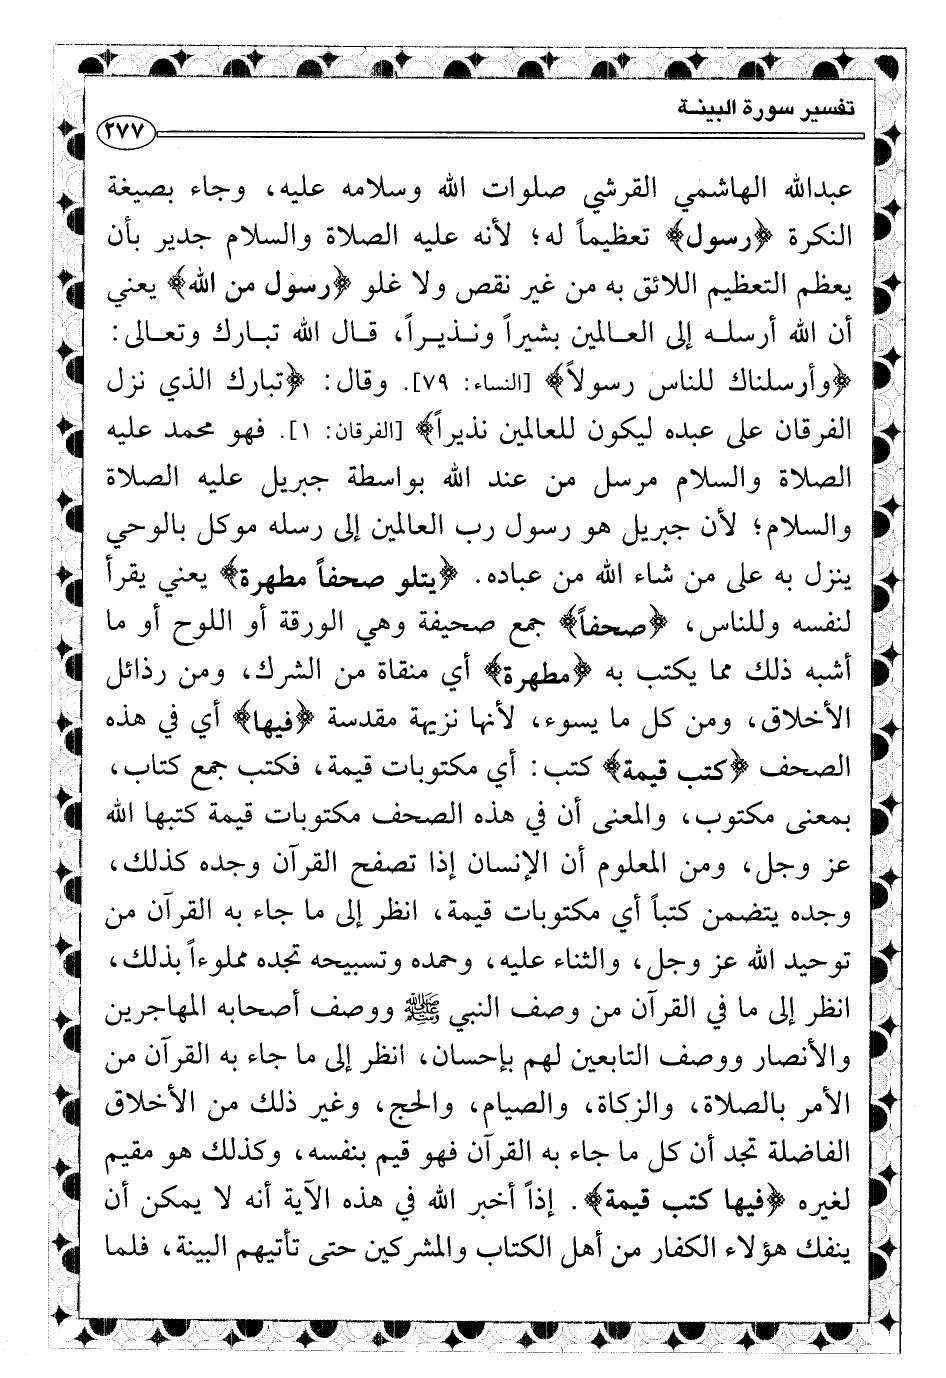 تفسير سورة البينة
٢٧٧
عبدالله الهاشمي القرشي صلوات الله وسلامه عليه، وجاء بصيغة
النكرة ﴿رسول﴾ تعظيماً له؛ لأنه عليه الصلاة والسلام جدير بأن
يعظم التعظيم اللائق به من غير نقص ولا غلو ﴿رسول من الله﴾ يعني
أن الله أرسله إلى العالمين بشيراً ونذيراً، قال الله تبارك وتعالى:
﴿وأرسلناك للناس رسولاً﴾ [النساء: ٧٩]. وقال: ﴿تبارك الذي نزل
الفرقان على عبده ليكون للعالمين نذيراً﴾ [الفرقان: ١]. فهو محمد عليه
الصلاة والسلام مرسل من عند الله بواسطة جبريل عليه الصلاة
والسلام؛ لأن جبريل هو رسول رب العالمين إلى رسله موكل بالوحي
ينزل به على من شاء الله من عباده. ﴿يتلو صحفاً مطهرة﴾ يعني يقرأ
لنفسه وللناس، ﴿صحفاً﴾ جمع صحيفة وهي الورقة أو اللوح أو ما
أشبه ذلك مما يكتب به ﴿مطهرة﴾ أي منقاة من الشرك، ومن رذائل
الأخلاق، ومن كل ما يسوء، لأنها نزيهة مقدسة ﴿فيها﴾ أي في هذه
الصحف ﴿كتب قيمة﴾ كتب: أي مكتوبات قيمة، فكتب جمع كتاب،
بمعنى مكتوب، والمعنى أن في هذه الصحف مكتوبات قيمة كتبها الله
عز وجل، ومن المعلوم أن الإنسان إذا تصفح القرآن وجده كذلك،
وجده يتضمن كتباً أي مكتوبات قيمة، انظر إلى ما جاء به القرآن من
توحيد الله عز وجل، والثناء عليه، وحمده وتسبيحه تجده مملوءاً بذلك،
انظر إلى ما في القرآن من وصف النبي ﷺ ووصف أصحابه المهاجرين
والأنصار ووصف التابعين لهم بإحسان، انظر إلى ما جاء به القرآن من
الأمر بالصلاة، والزكاة، والصيام، والحج، وغير ذلك من الأخلاق
الفاضلة تجد أن كل ما جاء به القرآن فهو قيم بنفسه، وكذلك هو مقيم
لغيره ﴿فيها كتب قيمة﴾. إذاً أخبر الله في هذه الآية أنه لا يمكن أن
ينفك هؤلاء الكفار من أهل الكتاب والمشركين حتى تأتيهم البينة، فلما